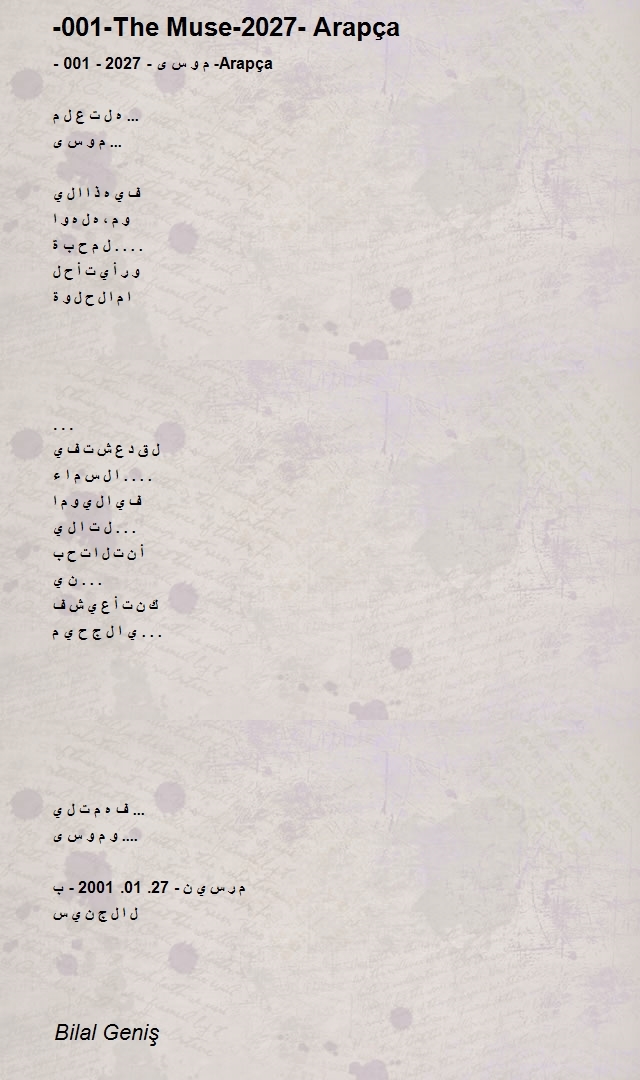 -001-The Muse-2027- Arapça
- 001 - 2027 - م و س ى -Arapça
ه ل ت ع ل م ...
م و س ى ...
ف ي ه ذ ا ا ل ي
و م ، ه ل ه و ا
ل م ح ب ة . . . .
و ر أ ي ت أ ح ل
ا م ا ل ح ل و ة
. . .
ل ق د ع ش ت ف ي
ا ل س م ا ء . . . .
ف ي ا ل ي و م ا
ل ت ا ل ي . . .
أ ن ت ل ا ت ح ب
ن ي . . .
ك ن ت أ ع ي ش ف
ي ا ل ج ح ي م . . .
ف ه م ت ل ي ...
و م و س ى ....
م ر س ي ن - 27. 01. 2001 - ب
ل ا ل ج ن ي س
Bilal Geniş